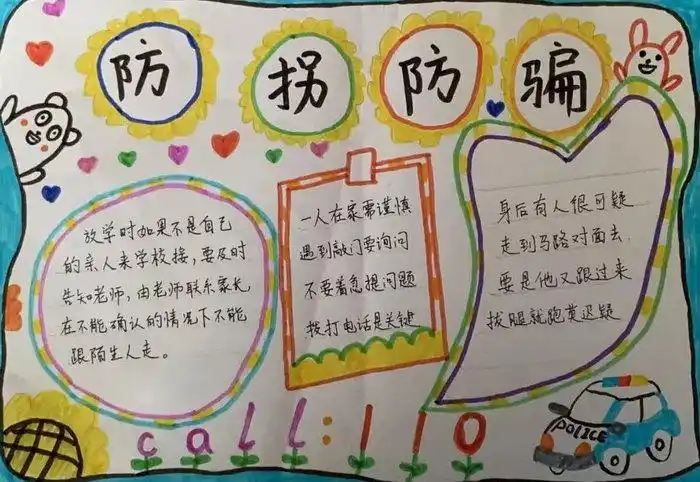 防拐防骗
放学时如果不是自己
的亲人来学校接，要及时
告知老师，由老师联系家长
在不能确认的情况下不能
跟陌生人走。
一人在家需谨慎
遇到敲门要询问
不要着急提问题
拨打电话是关键
身后有人很可疑
走到马路对面去
要是他又跟过来
拔腿就跑莫迟疑
call:110
POLICE